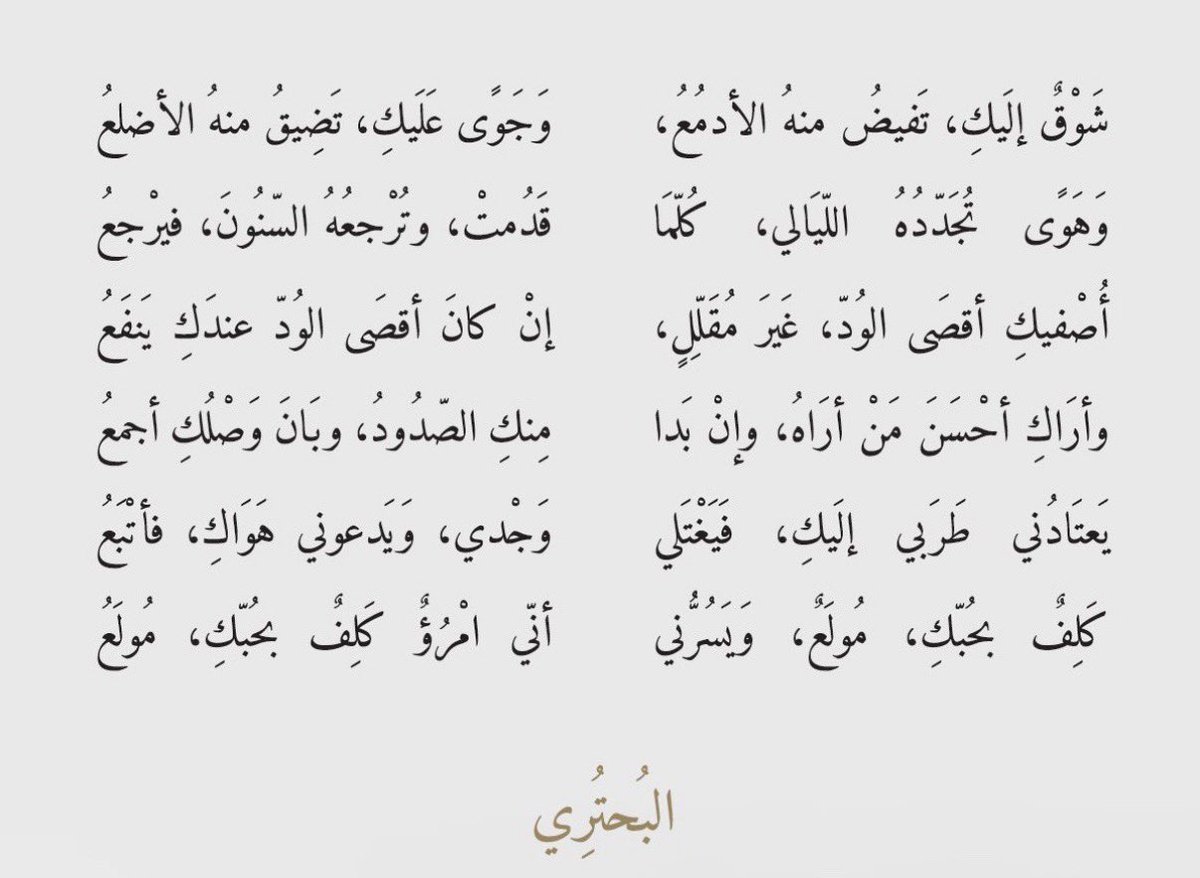 شَوْقٌ إلَيكِ، تَفيضُ منهُ الأدمُعُ، وَجَوًى عَلَيكِ، تَضِيقُ منهُ الأضلعُ
وَهَوًى تُجَدّدُهُ اللّيَالي، كُلّمَا قَدُمتْ، وتُرْجعُهُ السّنُونَ، فيرْجعُ
أُصْفيكِ أقصَى الوُدّ، غَيرَ مُقَلِّلٍ، إنْ كانَ أقصَى الوُدّ عندَكِ يَنفَعُ
وأرَاكِ أحْسَنَ مَنْ أرَاهُ، وإنْ بَدا مِنكِ الصّدُودُ، وبَانَ وَصْلُكِ أجمعُ
يَعتَادُني طَرَبي إلَيكِ، فَيَغْتَلي وَجْدي، وَيَدعوني هَوَاكِ، فأتْبَعُ
كَلِفٌ بحُبّكِ، مُولَعٌ، وَيَسُرُّني أنّي امْرُؤٌ كَلِفٌ بحُبّكِ، مُولَعُ
البُحتُرِي